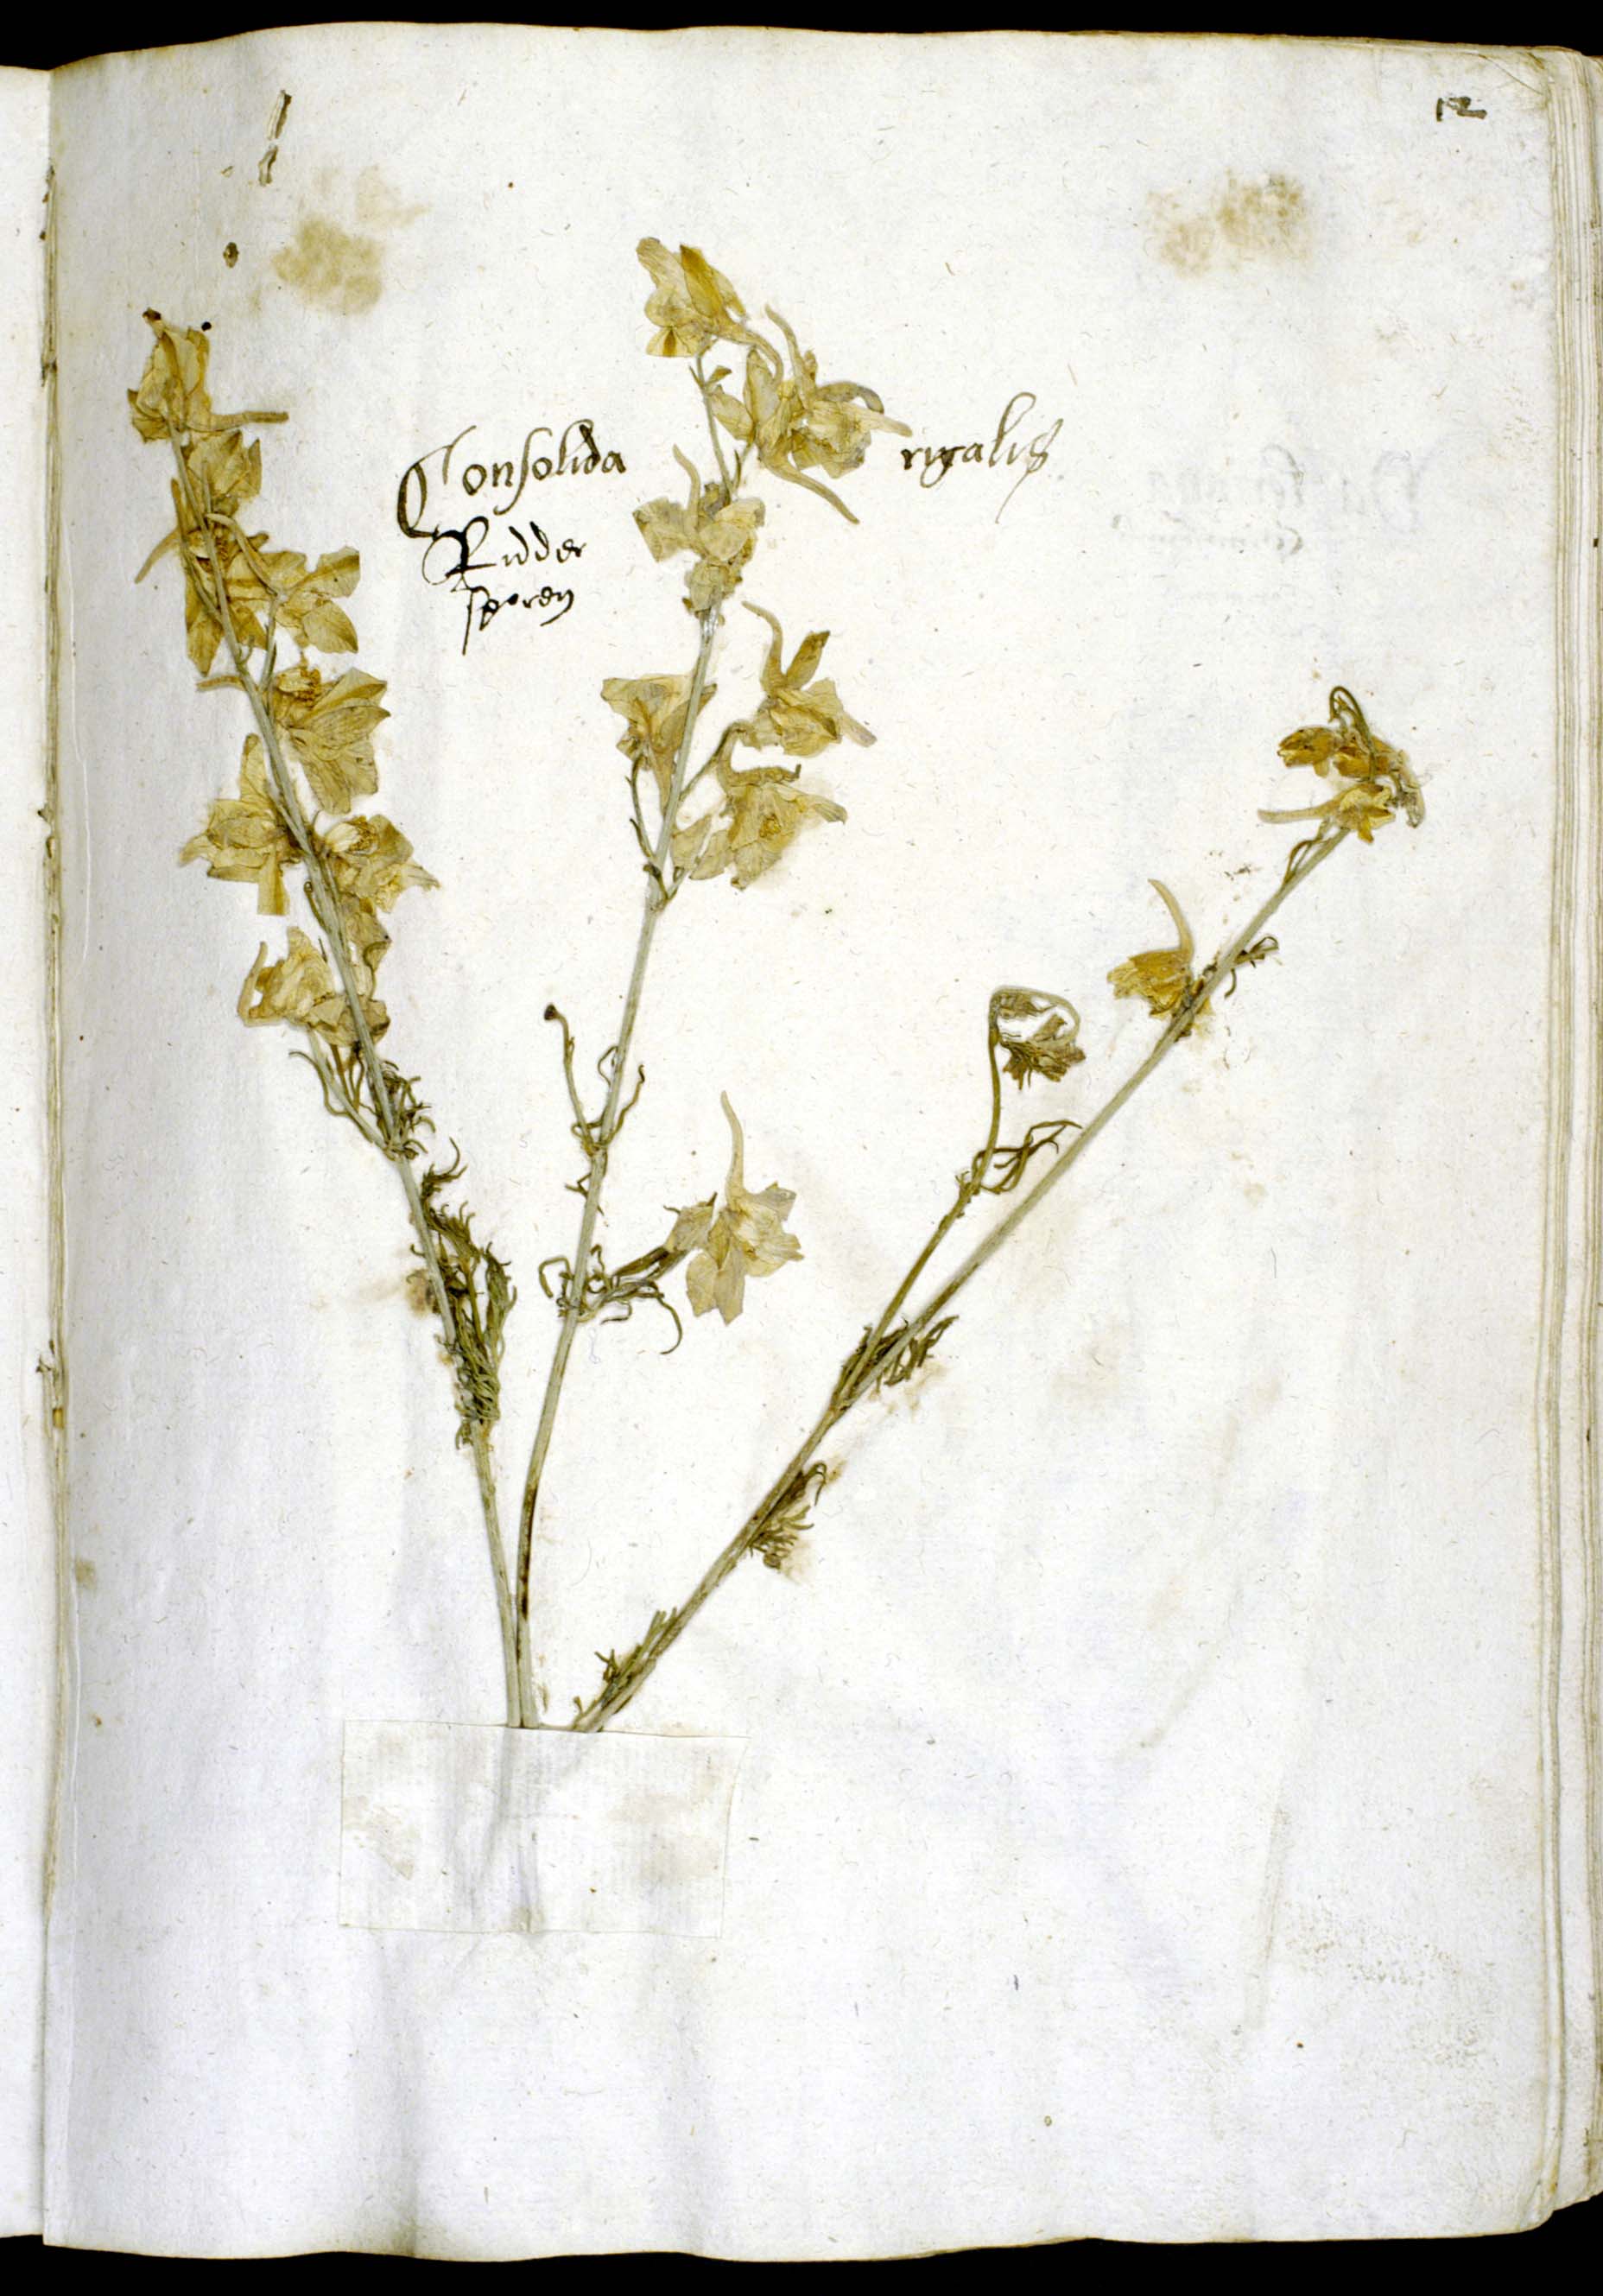 12
Consolida rigalis
Ridder
sporen